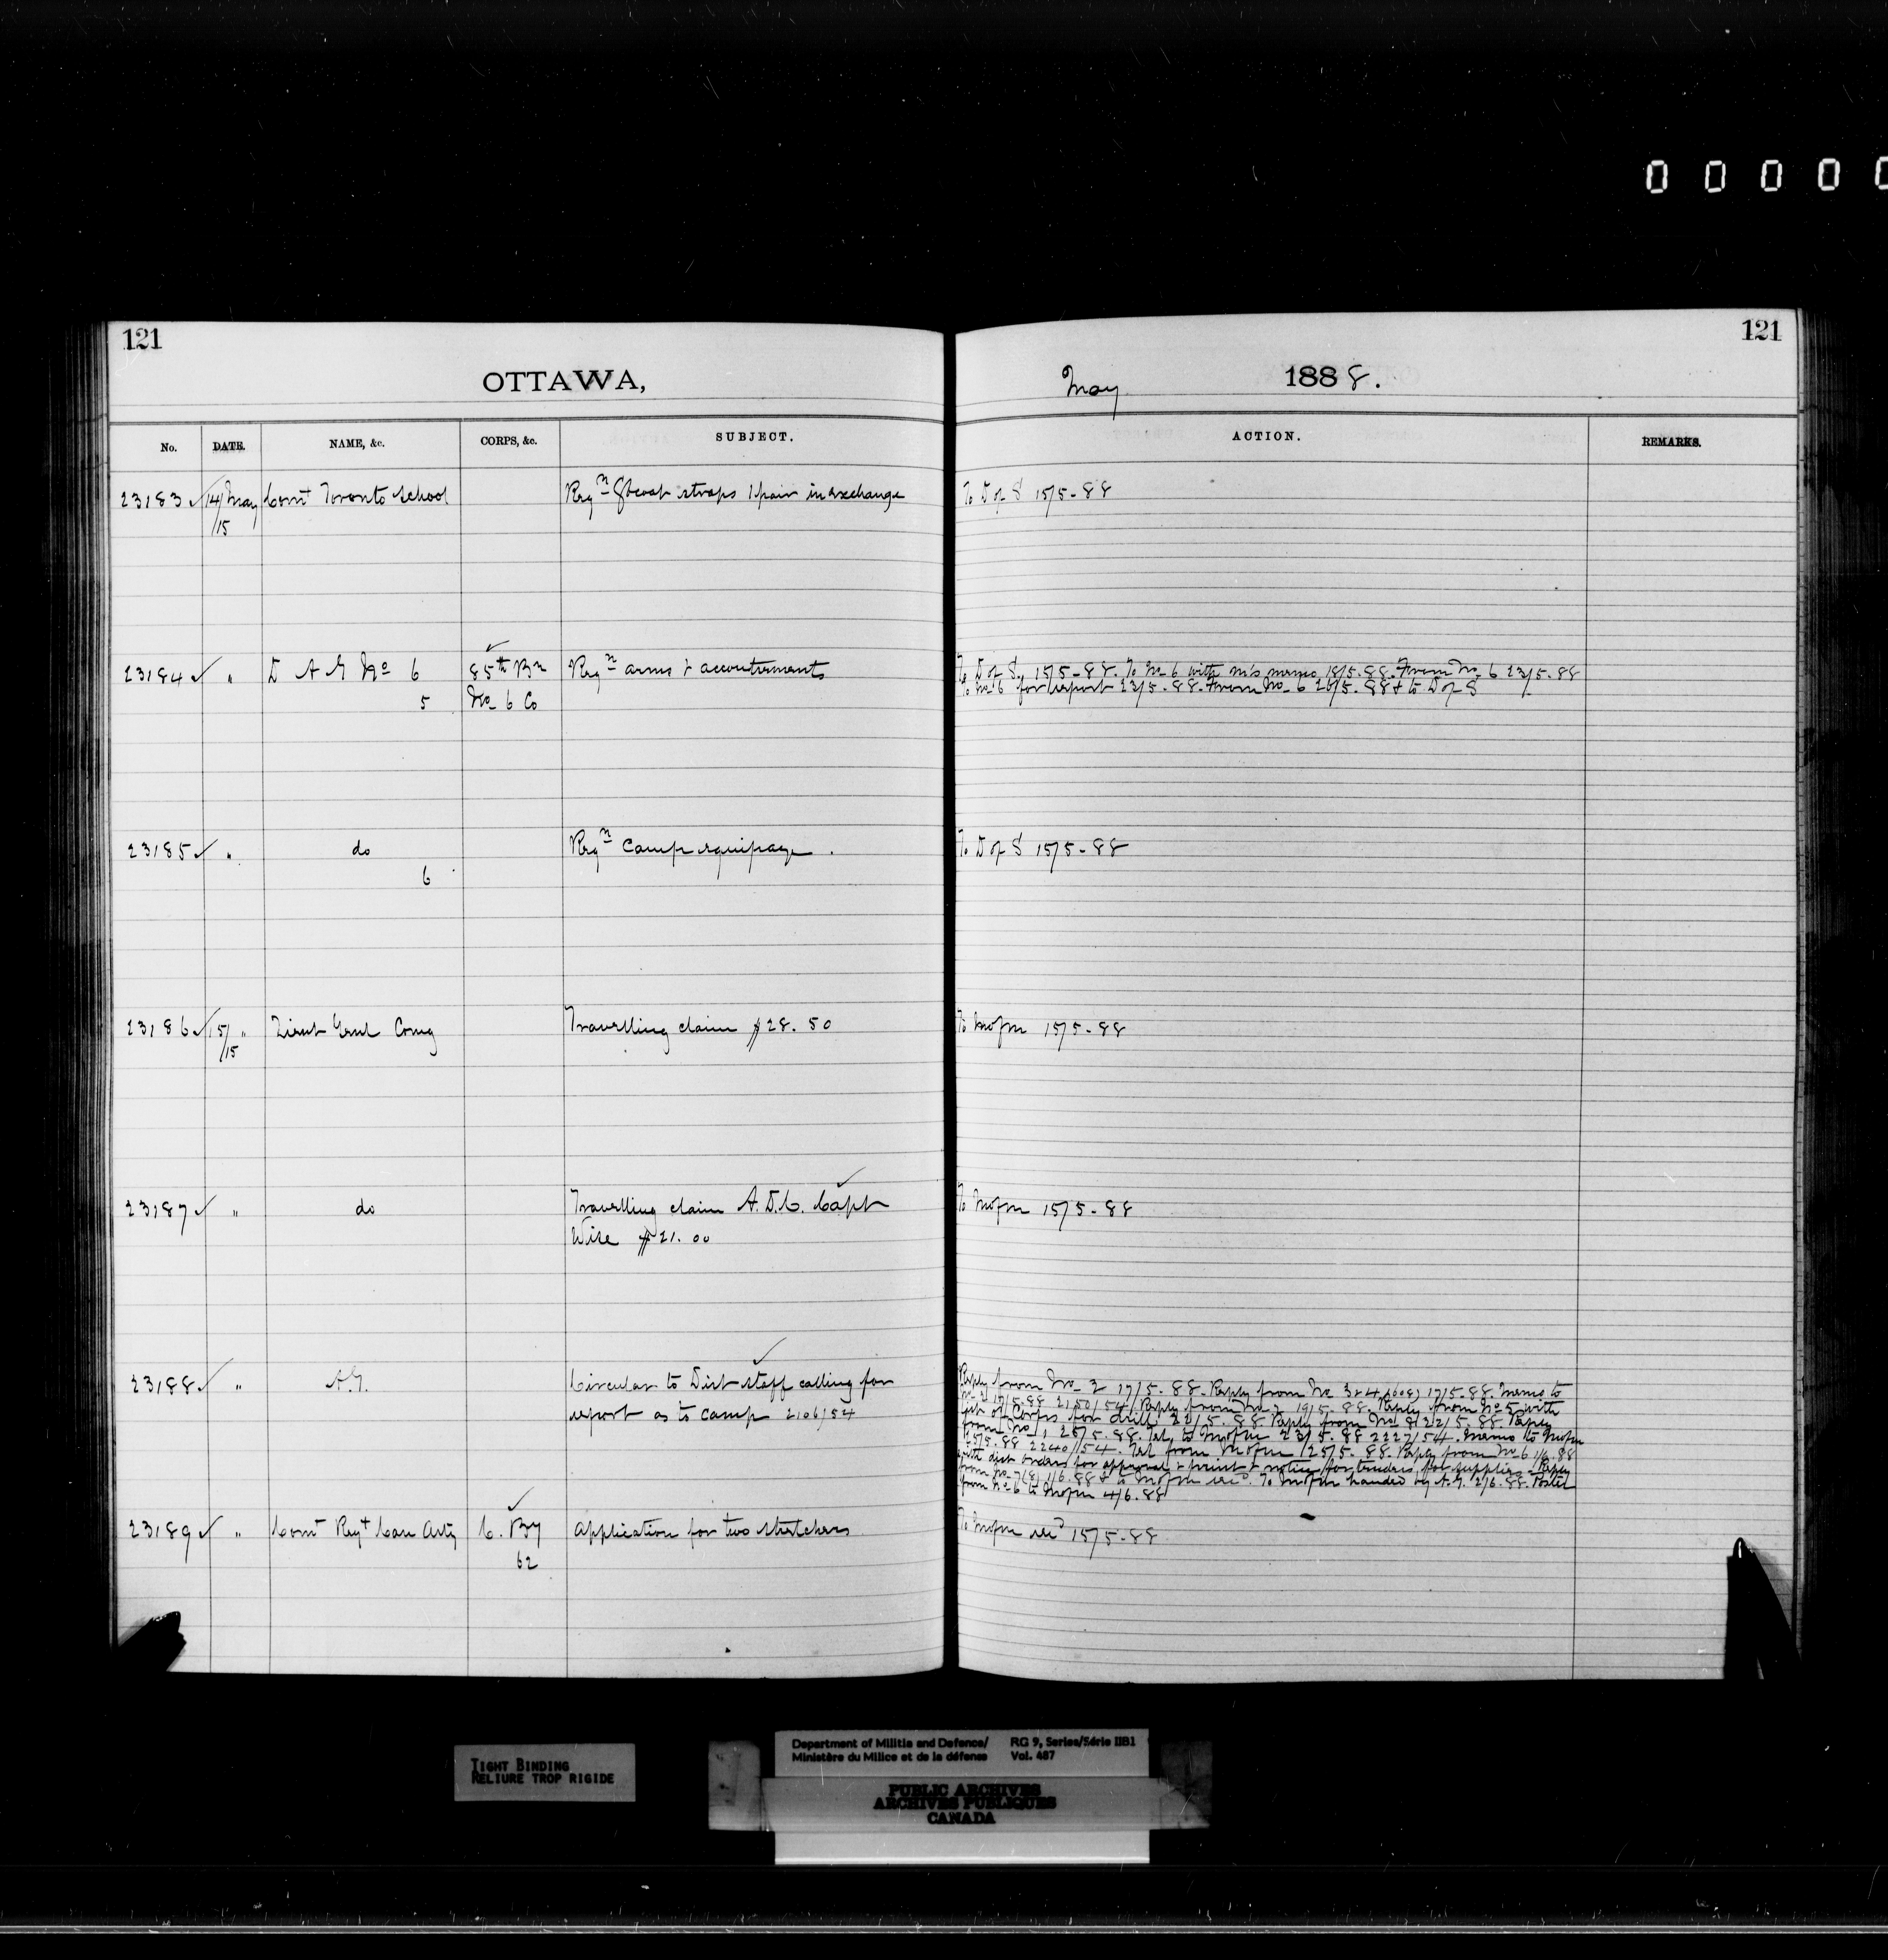 0 0 0 0 0
121
121
OTTAWA,
May 1888.
No. DATE. NAME, &c. CORPS, &c. SUBJECT. ACTION. REMARKS.
23183 14/May Comt Toronto School Reqn Gtcoat straps 1 pair in exchange To D of S 15/5-88
/15
23184 " D A G No 6 85th Bn Reqn arms & accoutrements To D of S. 15/5-88. To No 6 with m's memo 18/5.88. From No 6 23/5.88
5 No 6 Co To No 6 for report 23/5.88. From No 6 26/5.88 & to D of S
23185 " do Reqn Camp equipage. To D of S 15/5-88
6
23186 15/ " Lieut Genl Comg Travelling claim $28.50 To Mofm 15/5-88
/15
23187 " do Travelling claim A.D.C. Capt To Mofm 15/5-88
Wise $21.00
23188 " A.G. Circular to Dist staff calling for
report as to camp 2106/54
Reply from No 2 17/5.88. Reply from No 3 & 4 17/5.88. Memo to
No 2 17/5.88 2150/54. Reply from No 19/5.88. Reply from No 5 with
list of Corps for drill 22/5.88 Reply from No 8 22/5.88 Reply
from No 1, 25/5.88. Tel to Mofm 23/5.88 2227/54. Memo to Mofm
25/5.88 2240/54. Tel from Mofm 25/5.88. Reply from No 6 1/6.88
with dist orders for approval & print & notice for tenders for supplies. Reply
from No 7 1/6.88 & to Mofm To Mofm handed by A.G. 2/6.88.
from No 6 to Mofm 4/6.88
23189 " Comt Regt Can Arty C. By application for two stretchers To Mofm 15/5-88
62
TIGHT BINDING
RELIURE TROP RIGIDE
Department of Militia and Defence/ RG 9, Series/Série IIB1
Ministère du Milice et de la défense Vol. 487
PUBLIC ARCHIVES
ARCHIVES PUBLIQUES
CANADA